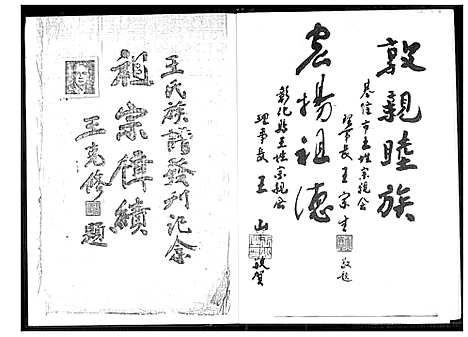 敦親睦族
基隆市王姓宗親会
理事長王宗生
敬題
宏揚祖德
彰化縣王姓宗親会
理事長王山
敬賀
王氏族譜發刊紀念
祖宗偉績
王克修題